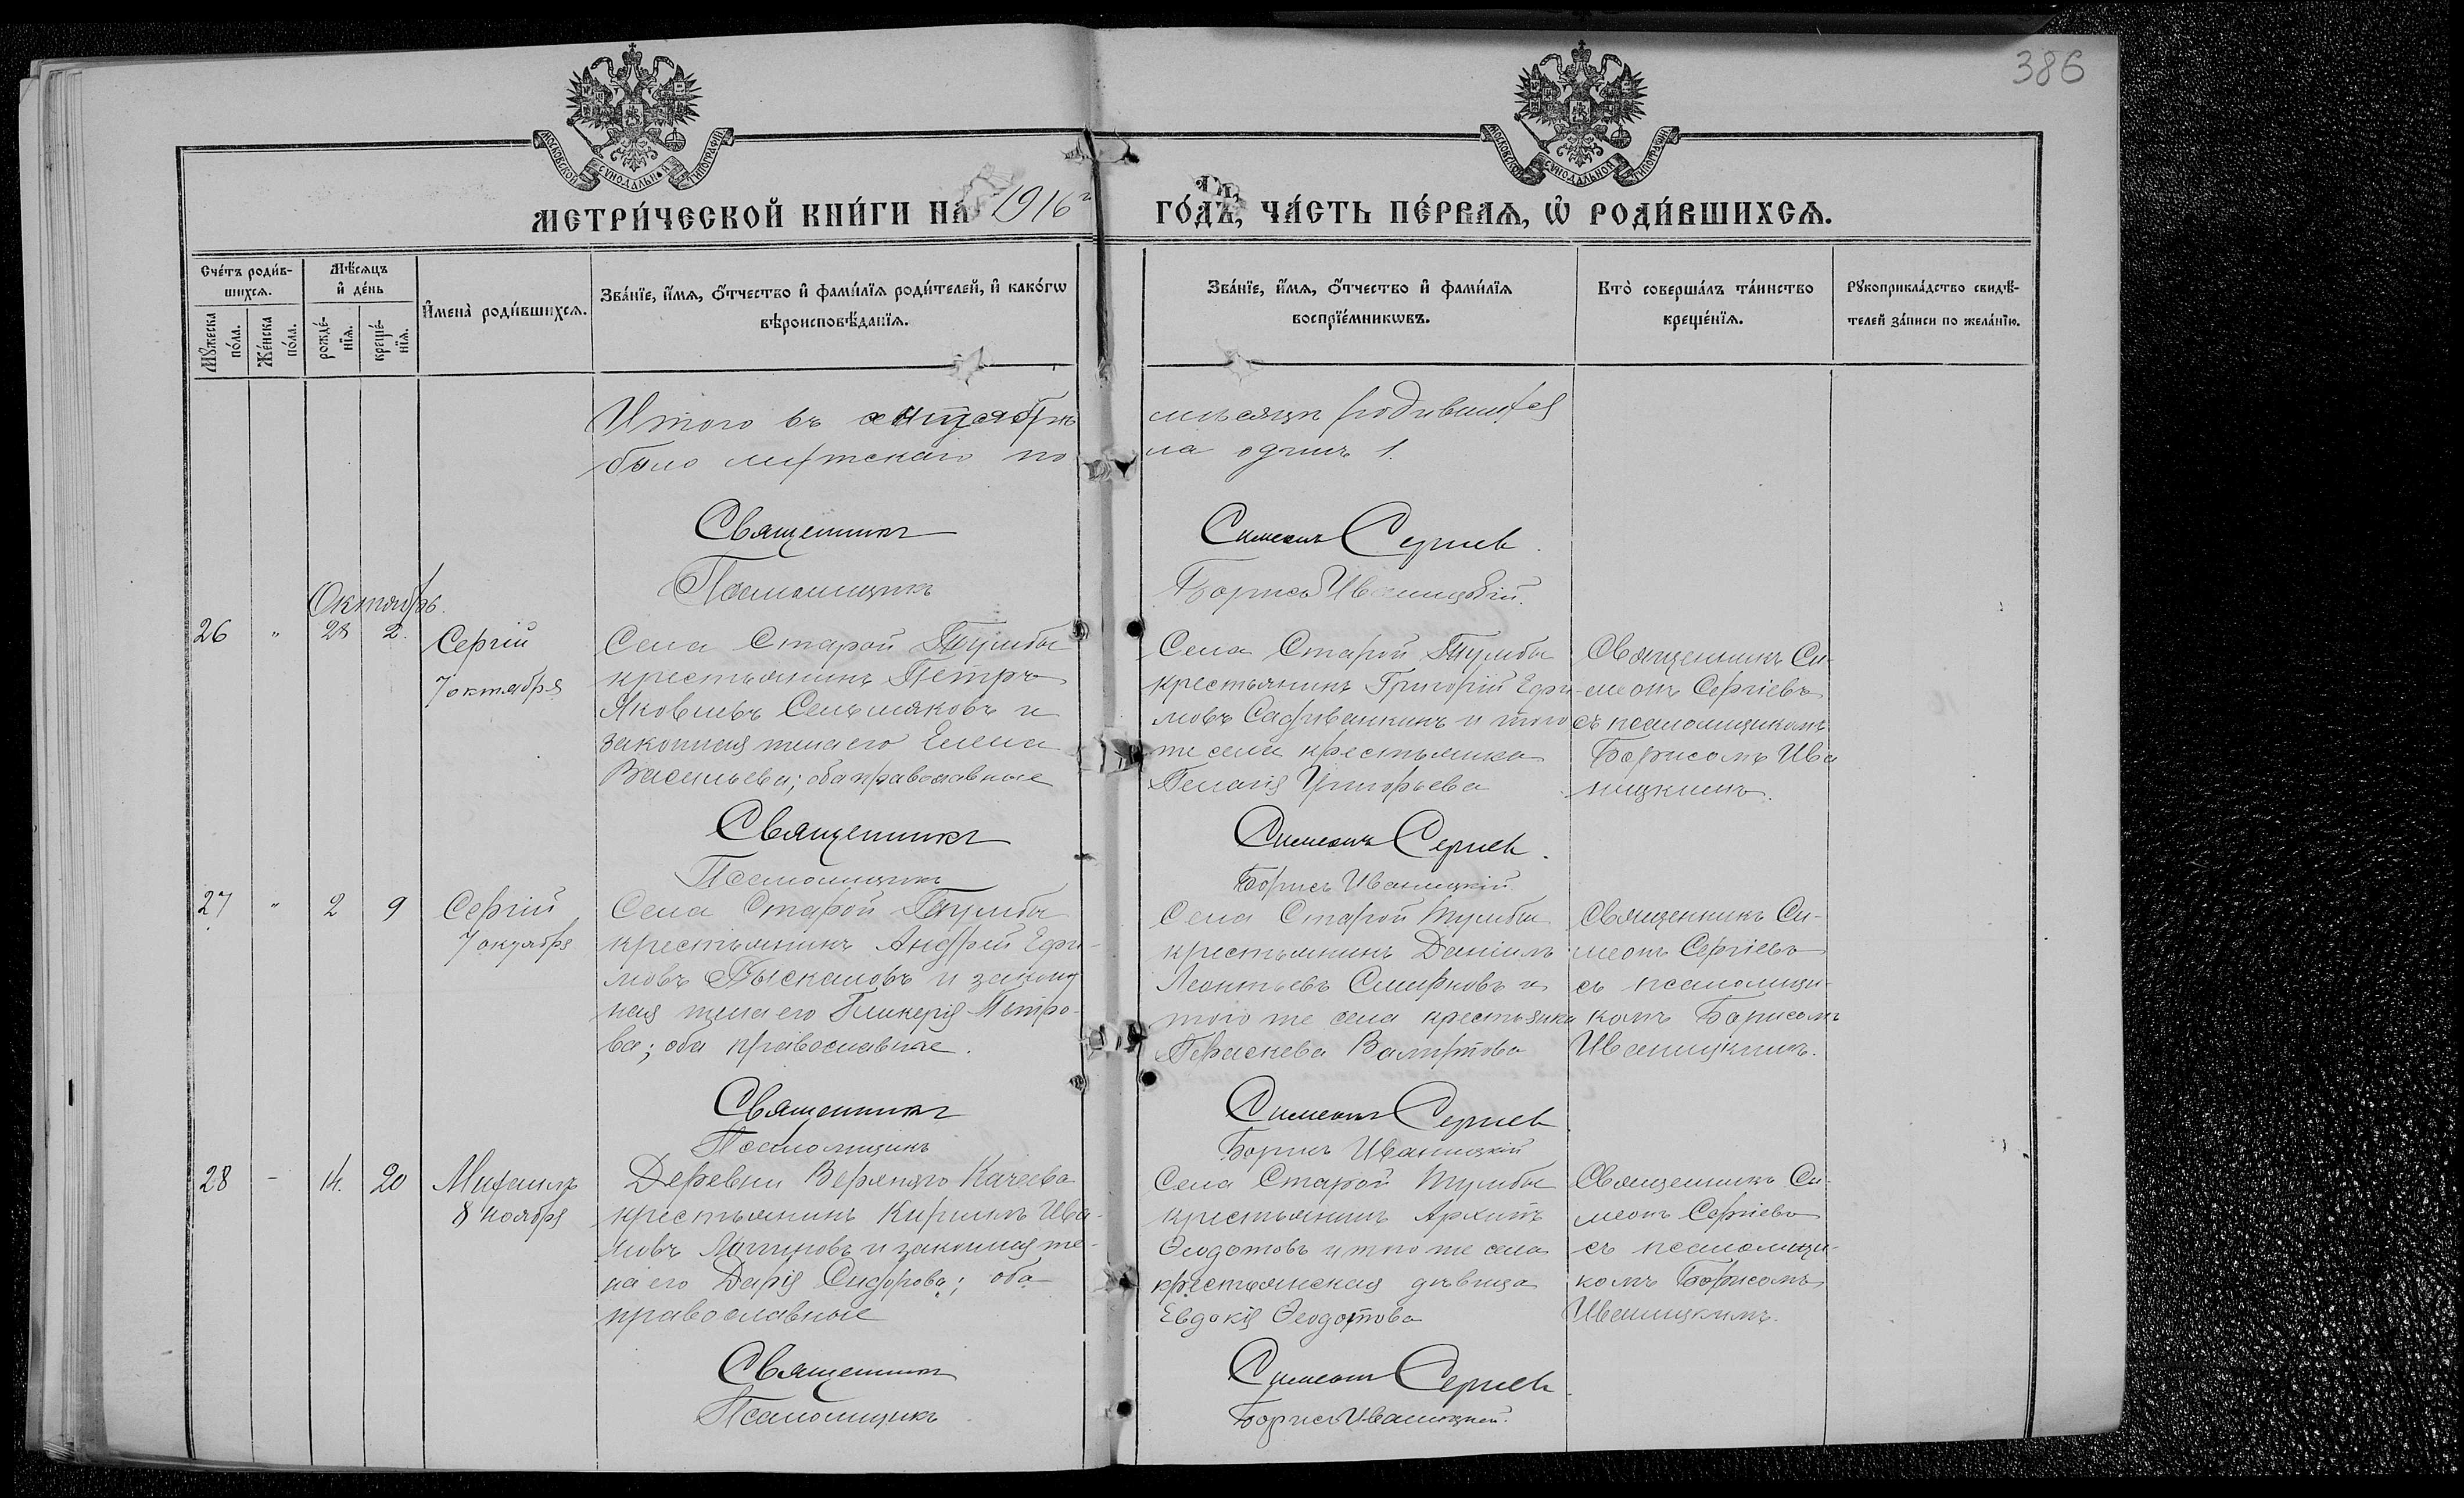 386
МОСКОВСКОЙ СѴНОДАЛЬНОЙ ТИПОГРАФІИ
МОСКОВСКОЙ СѴНОДАЛЬНОЙ ТИПОГРАФІИ
МЕТРИ́ЧЕСКОЙ КНИ́ГИ НА 1916 г ГО́ДЪ, ЧА́СТЬ ПЕ́РВАѦ, Ѽ РОДИ́ВШИХСѦ.
Сче́тъ роди́в-
шихсѧ.
Мꙋжеска по́ла.
Же́нска по́ла.
Мѣ́сѧцъ
и҆ де́нь
рожде́-
нїѧ.
креще́-
нїѧ.
И҆мена̀ роди́вшихсѧ.
Зва́нїе, и҆́мѧ, ѻ҆́тчество и҆ фами́лїѧ роди́телей, и҆ како́гѡ
вѣроисповѣ́данїѧ.
Зва́нїе, и҆́мѧ, ѻ҆́тчество и҆ фами́лїѧ
воспрїе́мникѡвъ.
Кто̀ соверша́лъ та́инство
креще́нїѧ.
Рꙋкоприкла́дство свидѣ́-
телей за́писи по жела́нїю.
Итого въ сентябрѣ мѣсяцѣ родившихся
было мужскаго по ла одинъ 1.
Священникъ Симеонъ Сергіев.
Псаломщикъ Борисъ Иваницкій.
Октябрь.
26 " 28 2. Сергій
7 октября
Села Старой Тумбы
крестьянинъ Петръ
Яковлевъ Сельмяковъ и
законная жена его Елена
Васильева; оба православные
Села Старой Тумбы
крестьянинъ Григорій Ефи-
мовъ и того
же села крестьянка
Пелагія Григорьева
Священникъ Си-
меонъ Сергіевъ
съ псаломщикомъ
Борисомъ Ива
ницкимъ.
Священникъ Симеонъ Сергіев.
Псаломщикъ Борисъ Иваницкій
27 " 2 9 Сергій
7 октября
Села Старой Тумбы
крестьянинъ Андрей Ефи-
мовъ и закон
ная жена его Гликерія Петро-
ва; оба православные.
Села Старой Тумбы
крестьянинъ Даніилъ
Леонтьевъ Смирновъ и
того же села крестьянка
Параскева
Священникъ Си-
меонъ Сергіевъ
съ псаломщи-
комъ Борисомъ
Иваницкимъ.
Священникъ Симеонъ Сергіев
Псаломщикъ Борисъ Иваницкій
28 - 14. 20 Михаилъ
8 ноября
Деревни Верхняго Качеева
крестьянинъ Кириллъ Ива-
новъ Логиновъ и законная же-
на его Дарія Сидорова; оба
православные
Села Старой Тумбы
крестьянинъ Архипъ
Ѳеодотовъ и того же села
крестьянская дѣвица
Евдокія Ѳеодотова
Священникъ Си-
меонъ Сергіевъ
съ псаломщи-
комъ Борисомъ
Иваницкимъ.
Священникъ Симеонъ Сергіев.
Псаломщикъ Борисъ Иваницкій.